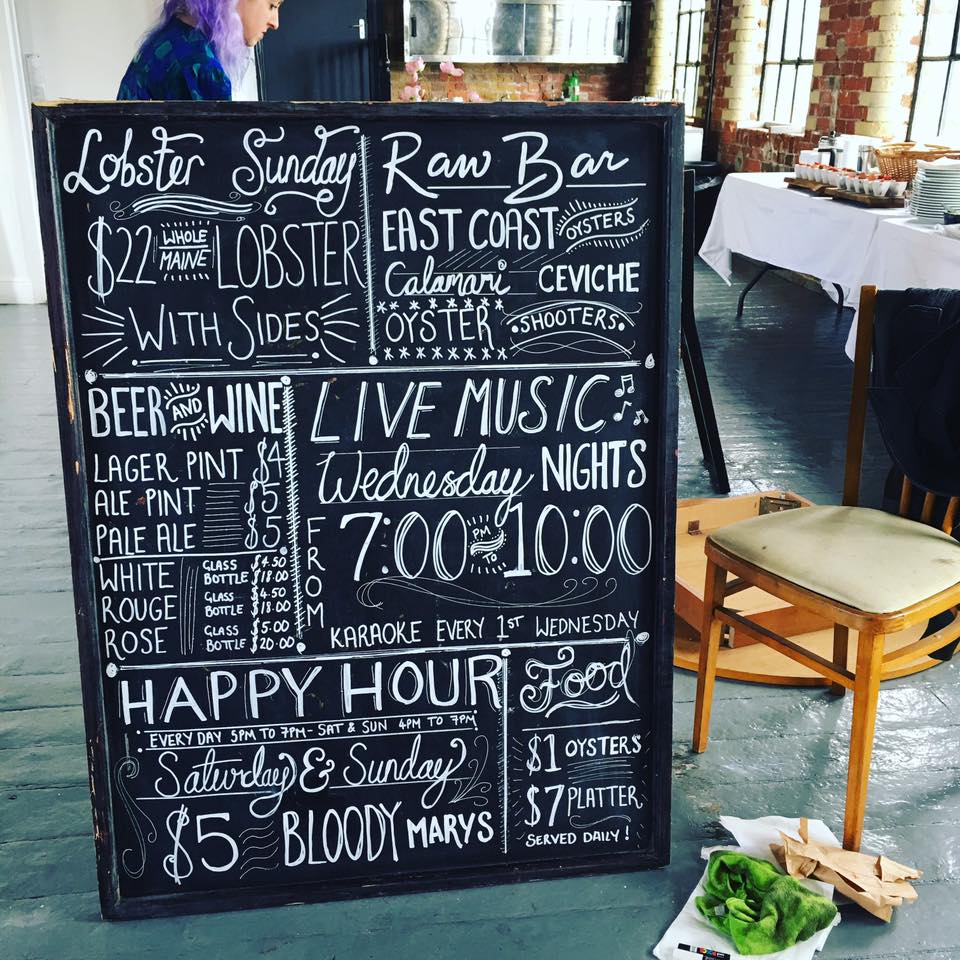 Lobster Sunday
$22 WHOLE MAINE LOBSTER
WITH SIDES
Raw Bar
EAST COAST OYSTERS
Calamari CEVICHE
OYSTER SHOOTERS
BEER AND WINE
LAGER PINT $4
ALE PINT $5
PALE ALE $5
WHITE GLASS $4.50
BOTTLE $18.00
ROUGE GLASS $4.50
BOTTLE $18.00
ROSE GLASS $5.00
BOTTLE $20.00
LIVE MUSIC
Wednesday NIGHTS
FROM 7:00 PM TO 10:00
KARAOKE EVERY 1ST WEDNESDAY
HAPPY HOUR
EVERY DAY 5PM TO 7PM - SAT & SUN 4PM TO 7PM
Saturday & Sunday
$5 BLOODY MARYS
Food
$1 OYSTERS
$7 PLATTER
SERVED DAILY!